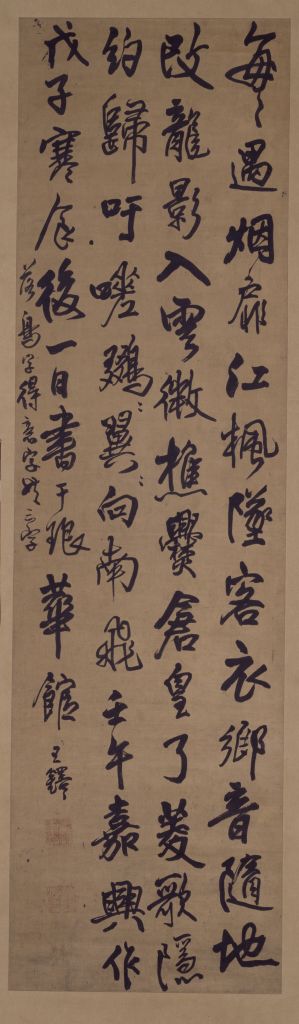 每〻遇烟扉江楓墜客衣鄉音隨地
改龍影入雲微樵爨倉皇了菱歌隱
約歸吁嗟鷄〻翼〻向南飛壬午嘉興作
戊子寒食後一日書于琅華館王鐸
落鳥字得意字